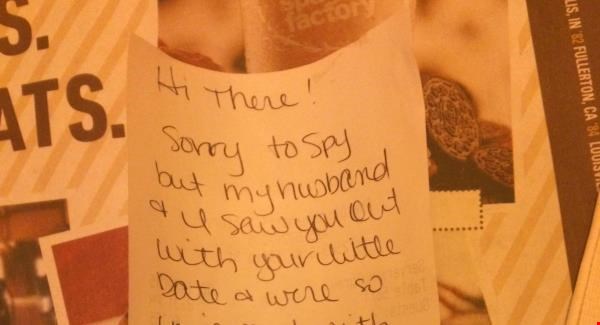 S.
ATS.
factory
LIS, IN '82 FULLERTON, CA '84 LOUIS
Hi There!
Sorry to spy
but my husband
& I saw you out
with your little
Date & were so
with